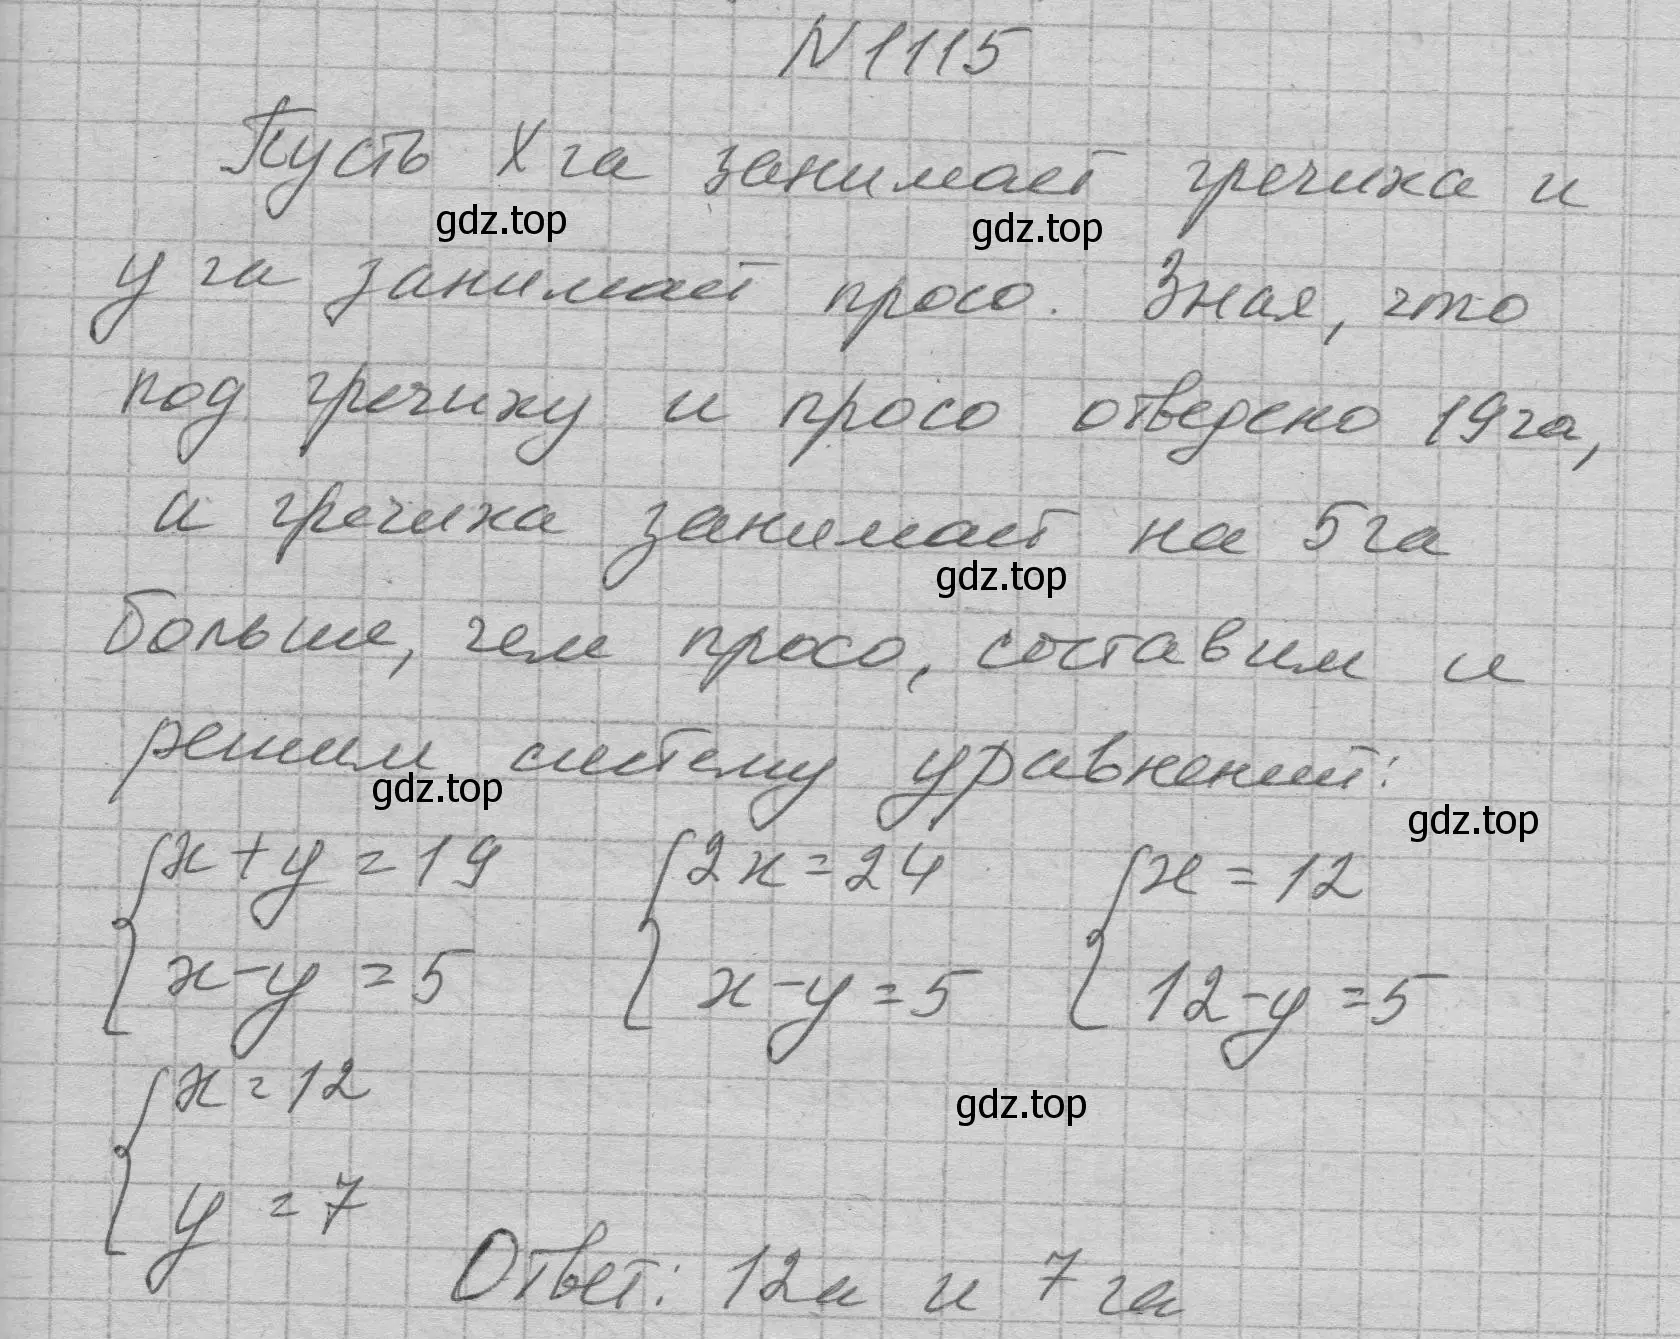 N 1115
Пусть х га занимает гречиха и
gdz.top gdz.top
у га занимает просо. Зная, что
под гречиху и просо отведено 19 га,
а гречиха занимает на 5 га
gdz.top
больше, чем просо, составим и
решим систему уравнений:
gdz.top gdz.top
{x+y=19 {2x=24 {x=12
x-y=5 x-y=5 12-y=5
{x=12
gdz.top
y=7
Ответ: 12а и 7 га